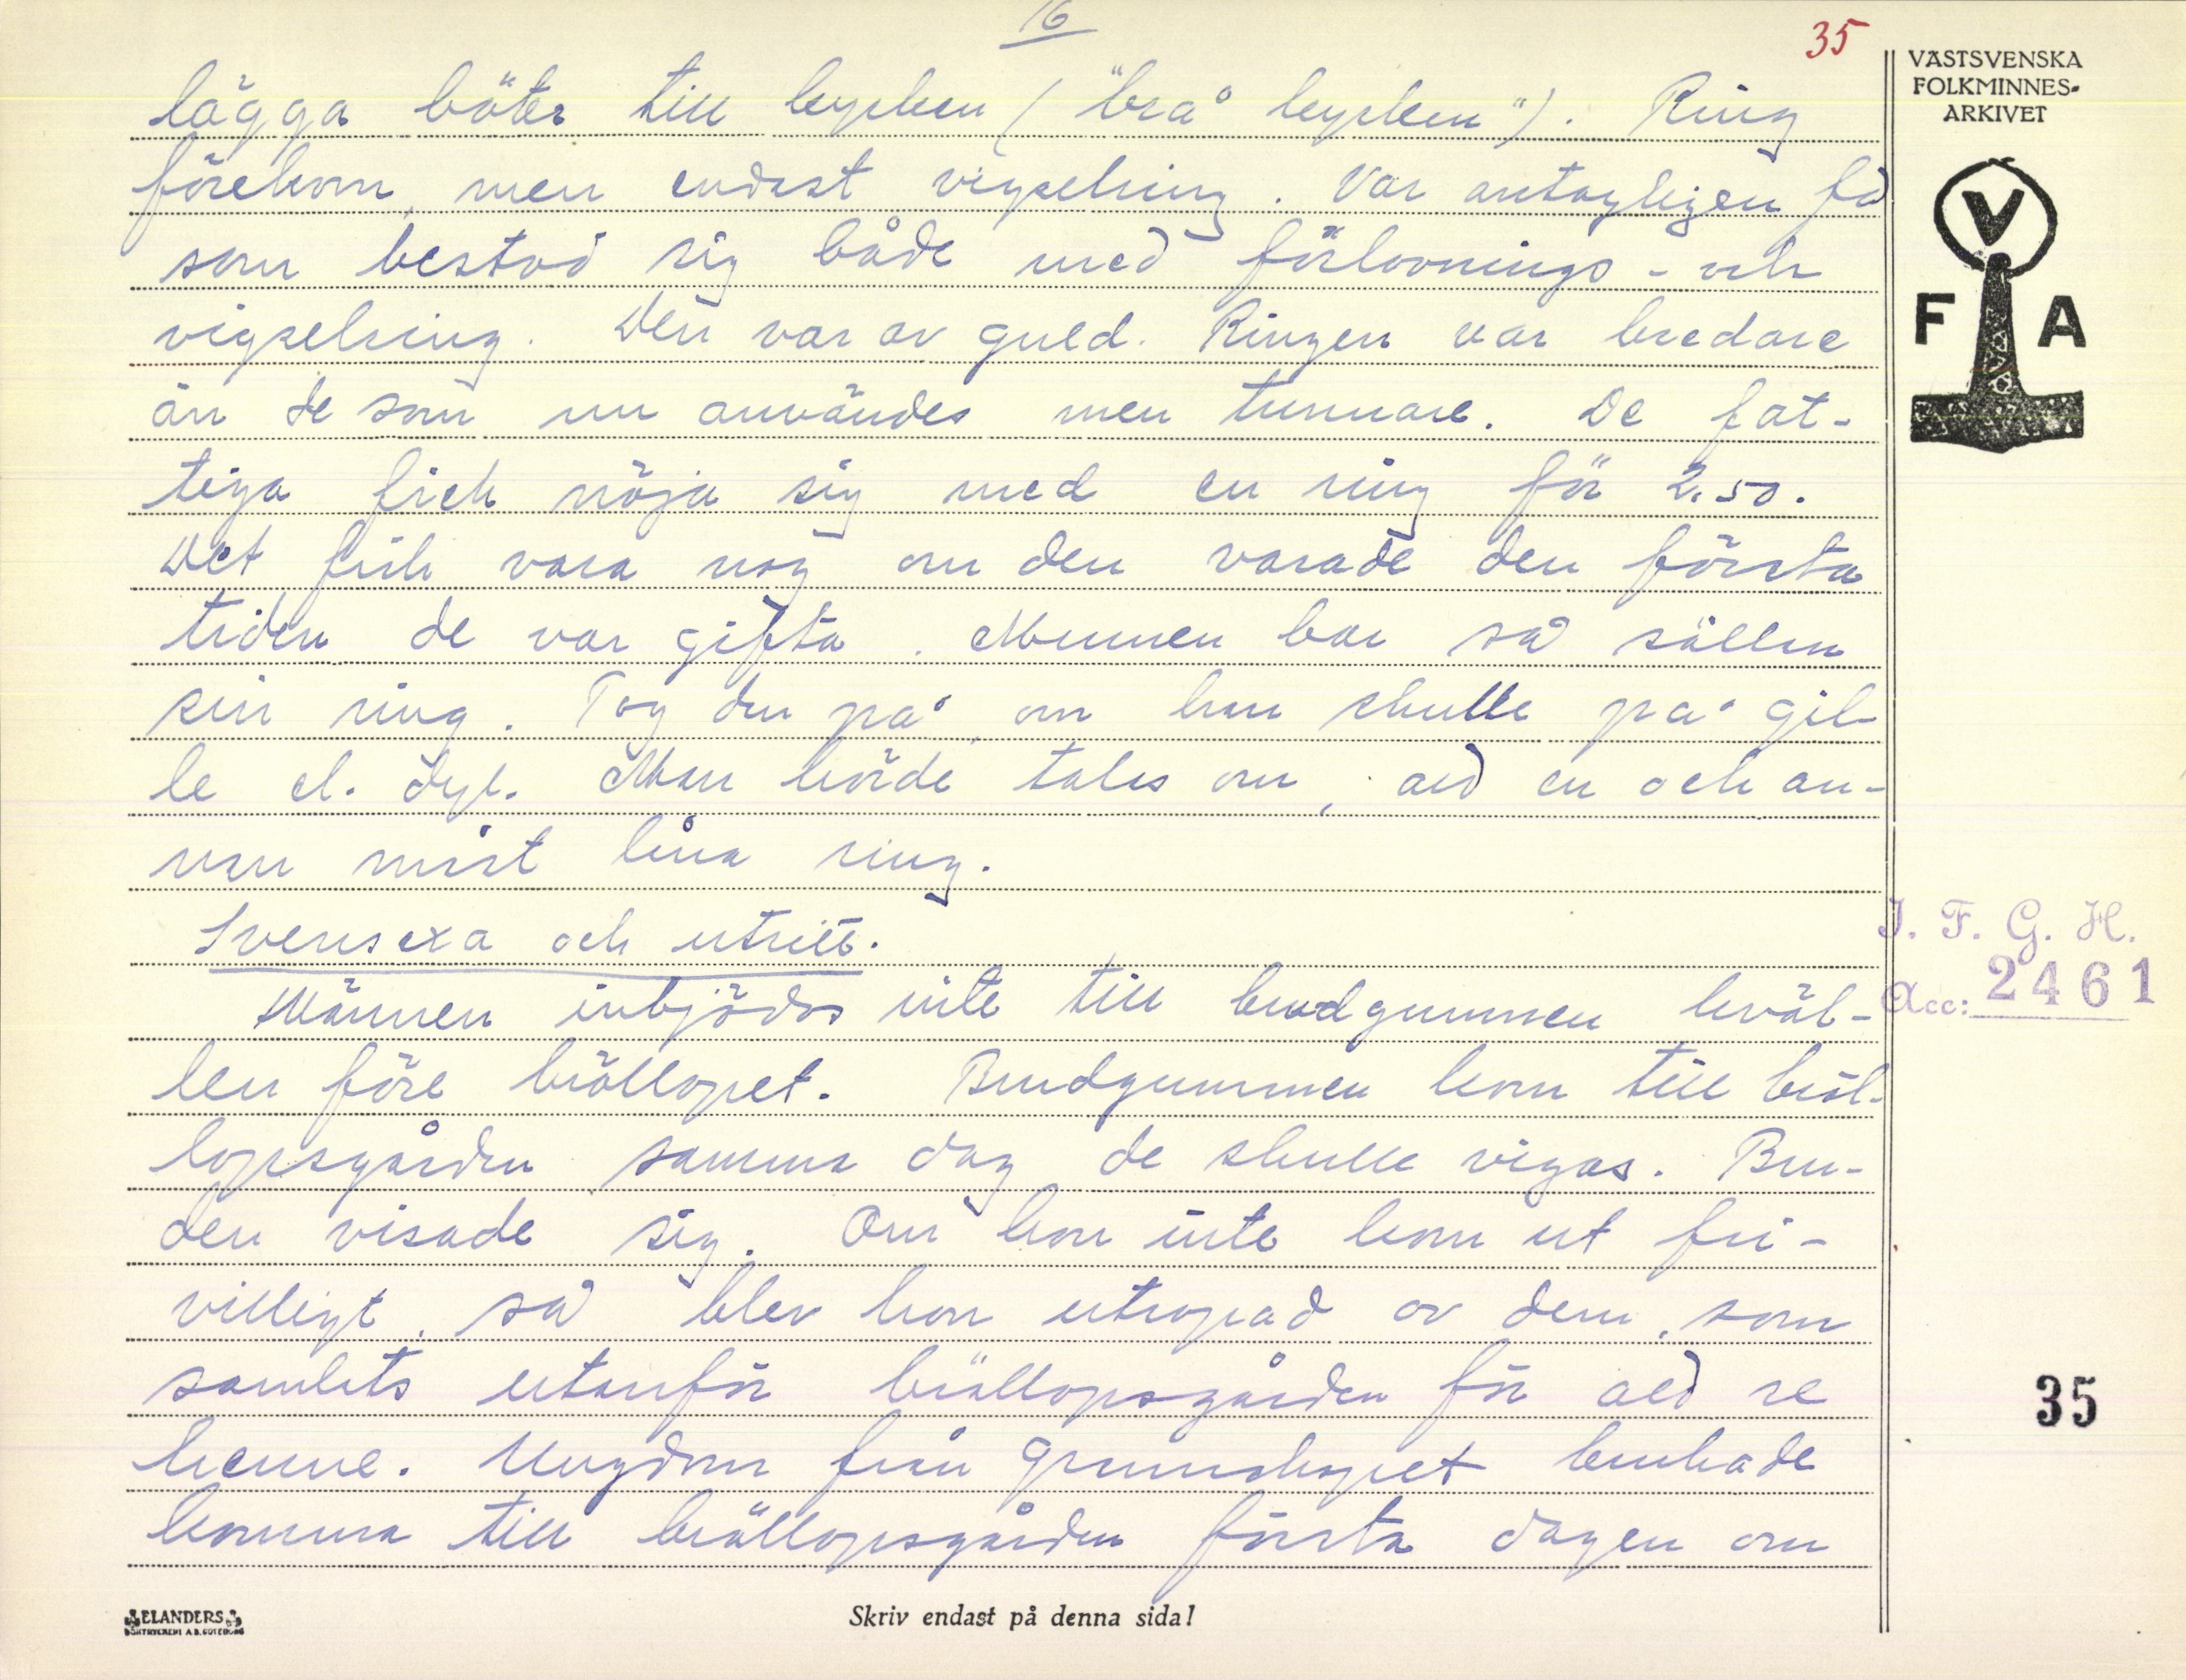 16
35
VÄSTSVENSKA
FOLKMINNES-
ARKIVET
lägga böter till kyrkan ("brå kyrken"). Ring
förekom, men endast vigselring. Var antagligen få
som bestod sig både med förlovnings- och
vigselring. Den var av guld. Ringen var bredare
än de som nu användes men tunnare. De fat-
tiga fick nöja sig med en ring för 2.50.
Det fick vara nog om den varade den första
tiden de var gifta. Mannen bar så sällan
sin ring. Tog den på, om han skulle på gil-
le el. dyl. Man hörde talas om, att en och an-
nan måst låna ring.
Svensexa och utritt.
Männen inbjödos inte till brudgummen kväl-
len före bröllopet. Brudgummen kom till bröl-
lopsgården samma dag de skulle vigas. Bru-
den visade sig. Om hon inte kom ut fri-
villigt, så blev hon utropad av dem, som
samlats utanför bröllopsgården för att se
henne. Ungdom från grannskapet brukade
komma till bröllopsgården första dagen om
V
F A
I. F. G. H.
Acc: 2461
35
ELANDERS
BOKTRYCKERI A.B. GÖTEBORG
Skriv endast på denna sida!